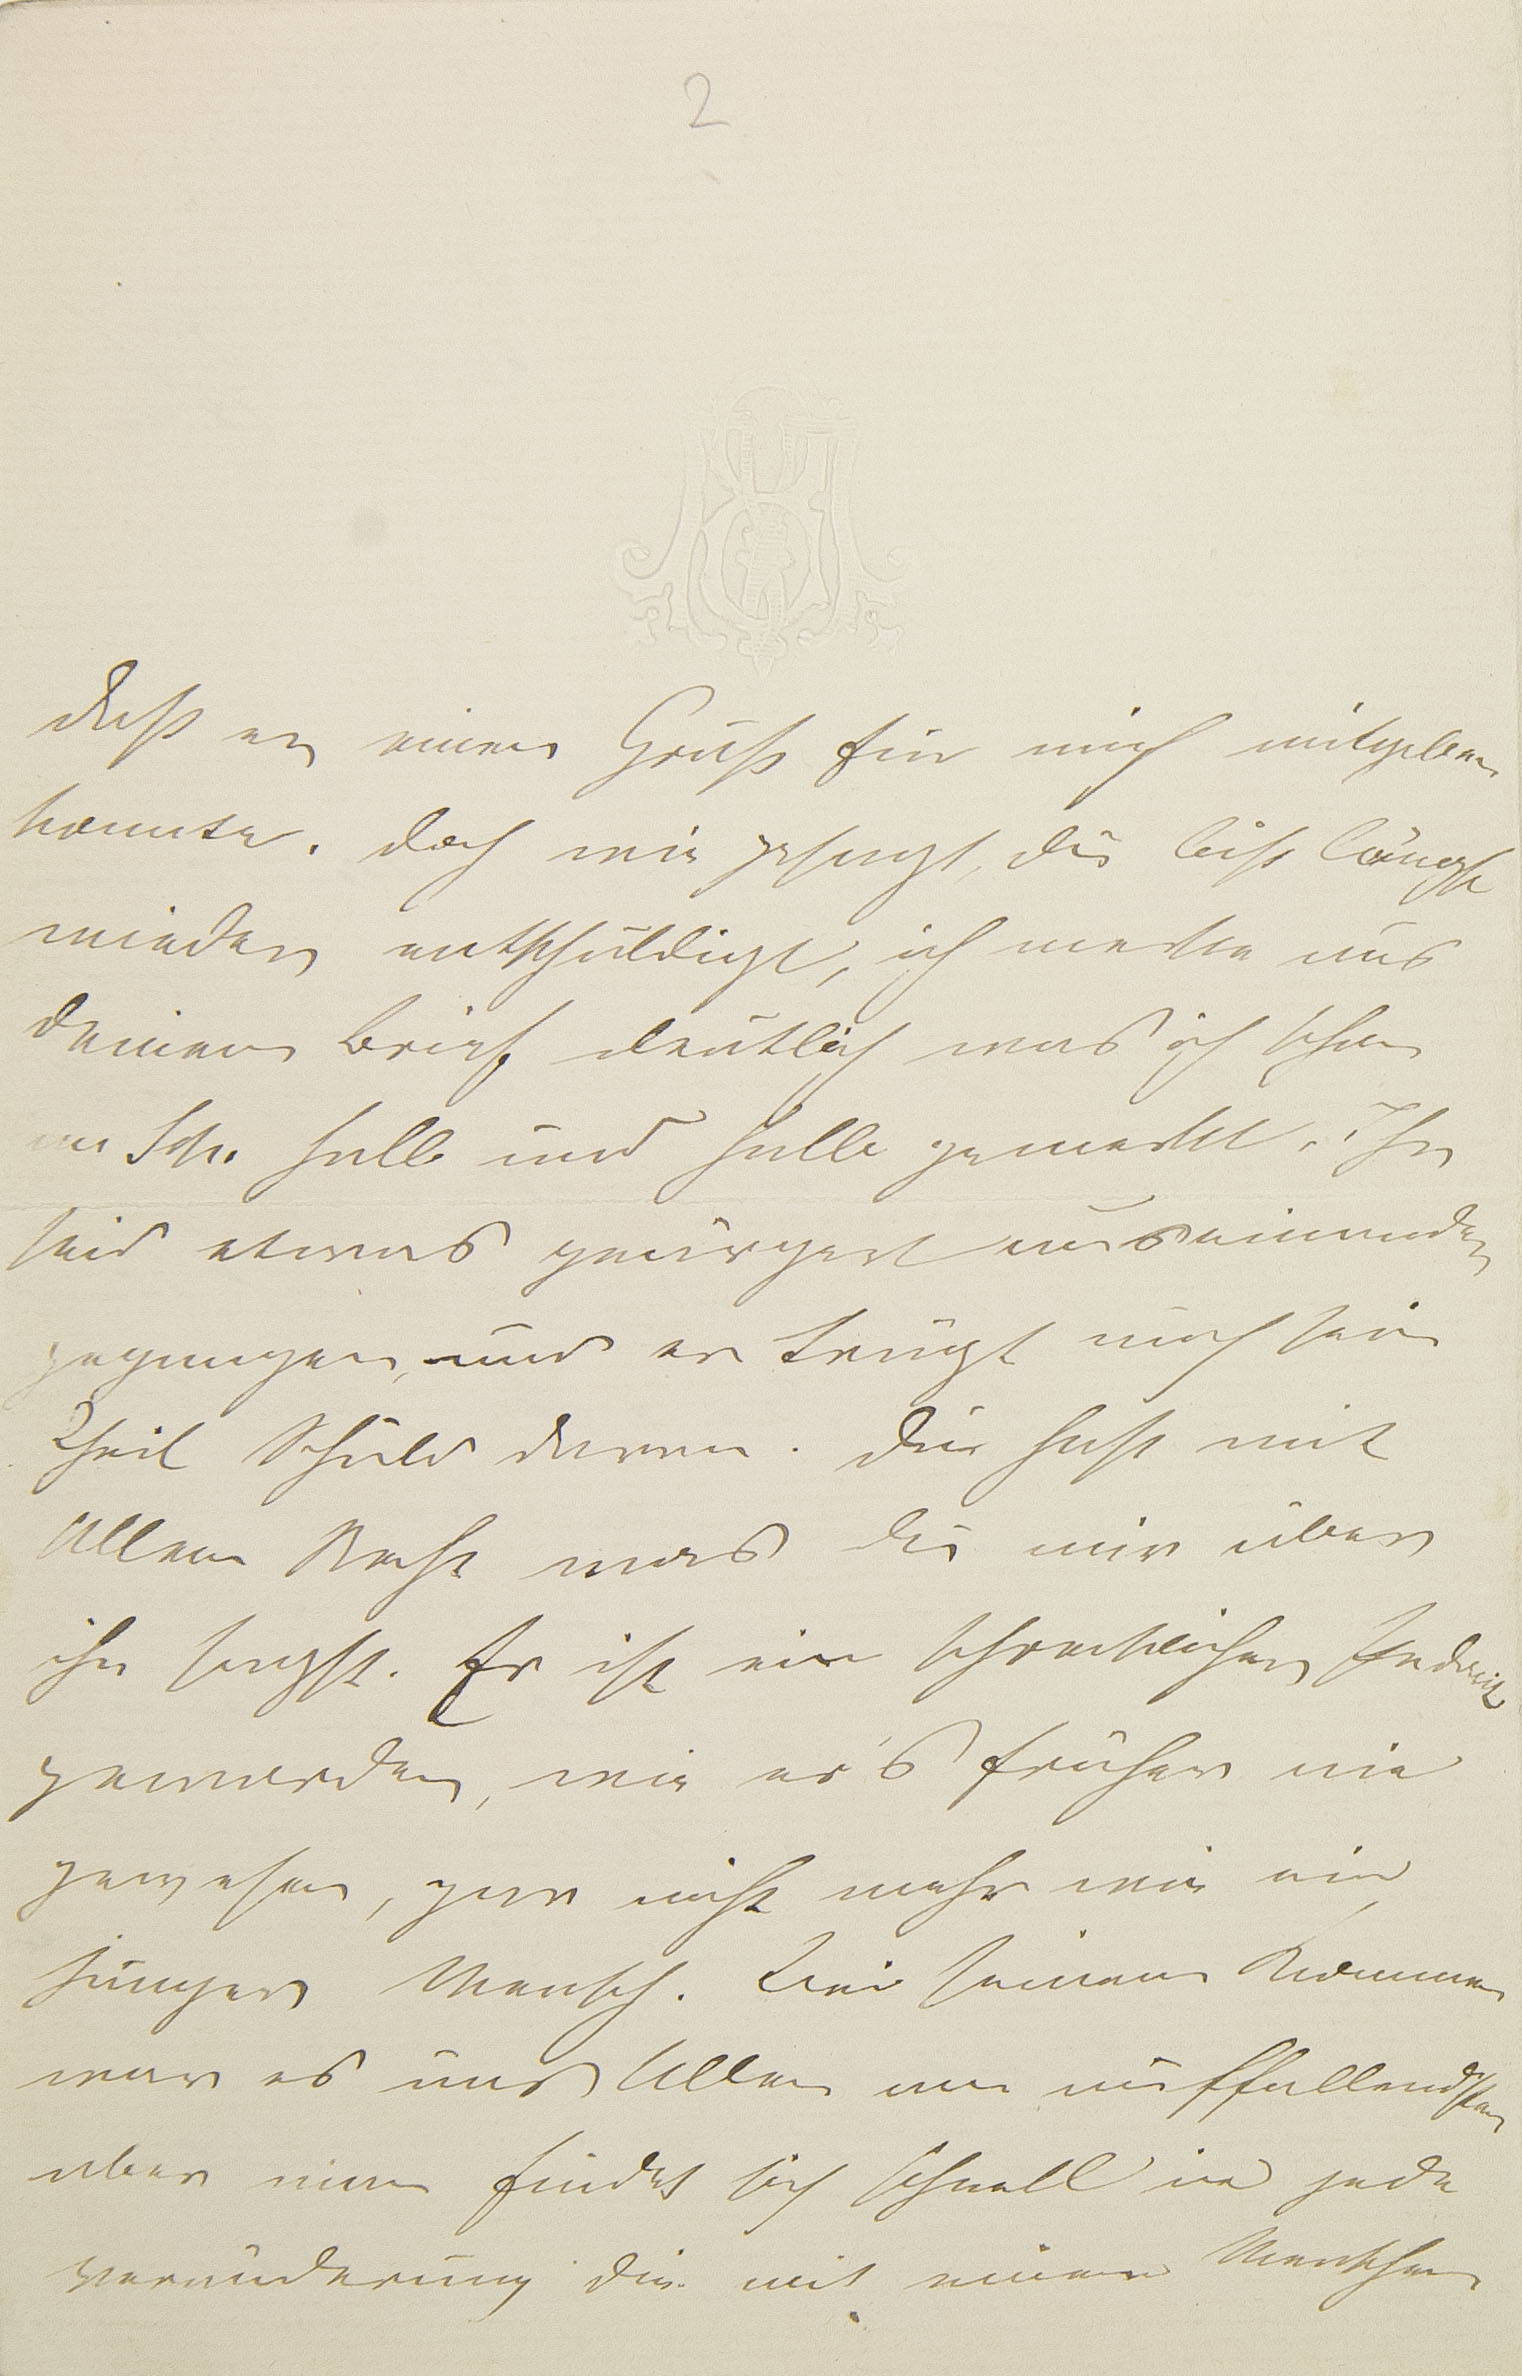 2
daß er einen Gruß für mich mitgeben
konnte. doch wie gesagt, du bist längst
wieder entschuldigt, ich merke aus
deinem Brief deutlich was ich schon
an Sch. halb und halb gemerkt. Ihr
seid etwas geärgert auseinander
gegangen, und er trägt auch sein
Theil Schuld daran. du hast mit
Allem Recht was du mir über
ihn sagst. Er ist ein schrecklicher
geworden, wie er's früher nie
gewesen, gar nicht mehr wie ein
junger Mensch. Bei seinem Kommen
war es uns Allen am auffallendsten
aber man findet sich schnell in jede
Veränderung die mit einem Menschen